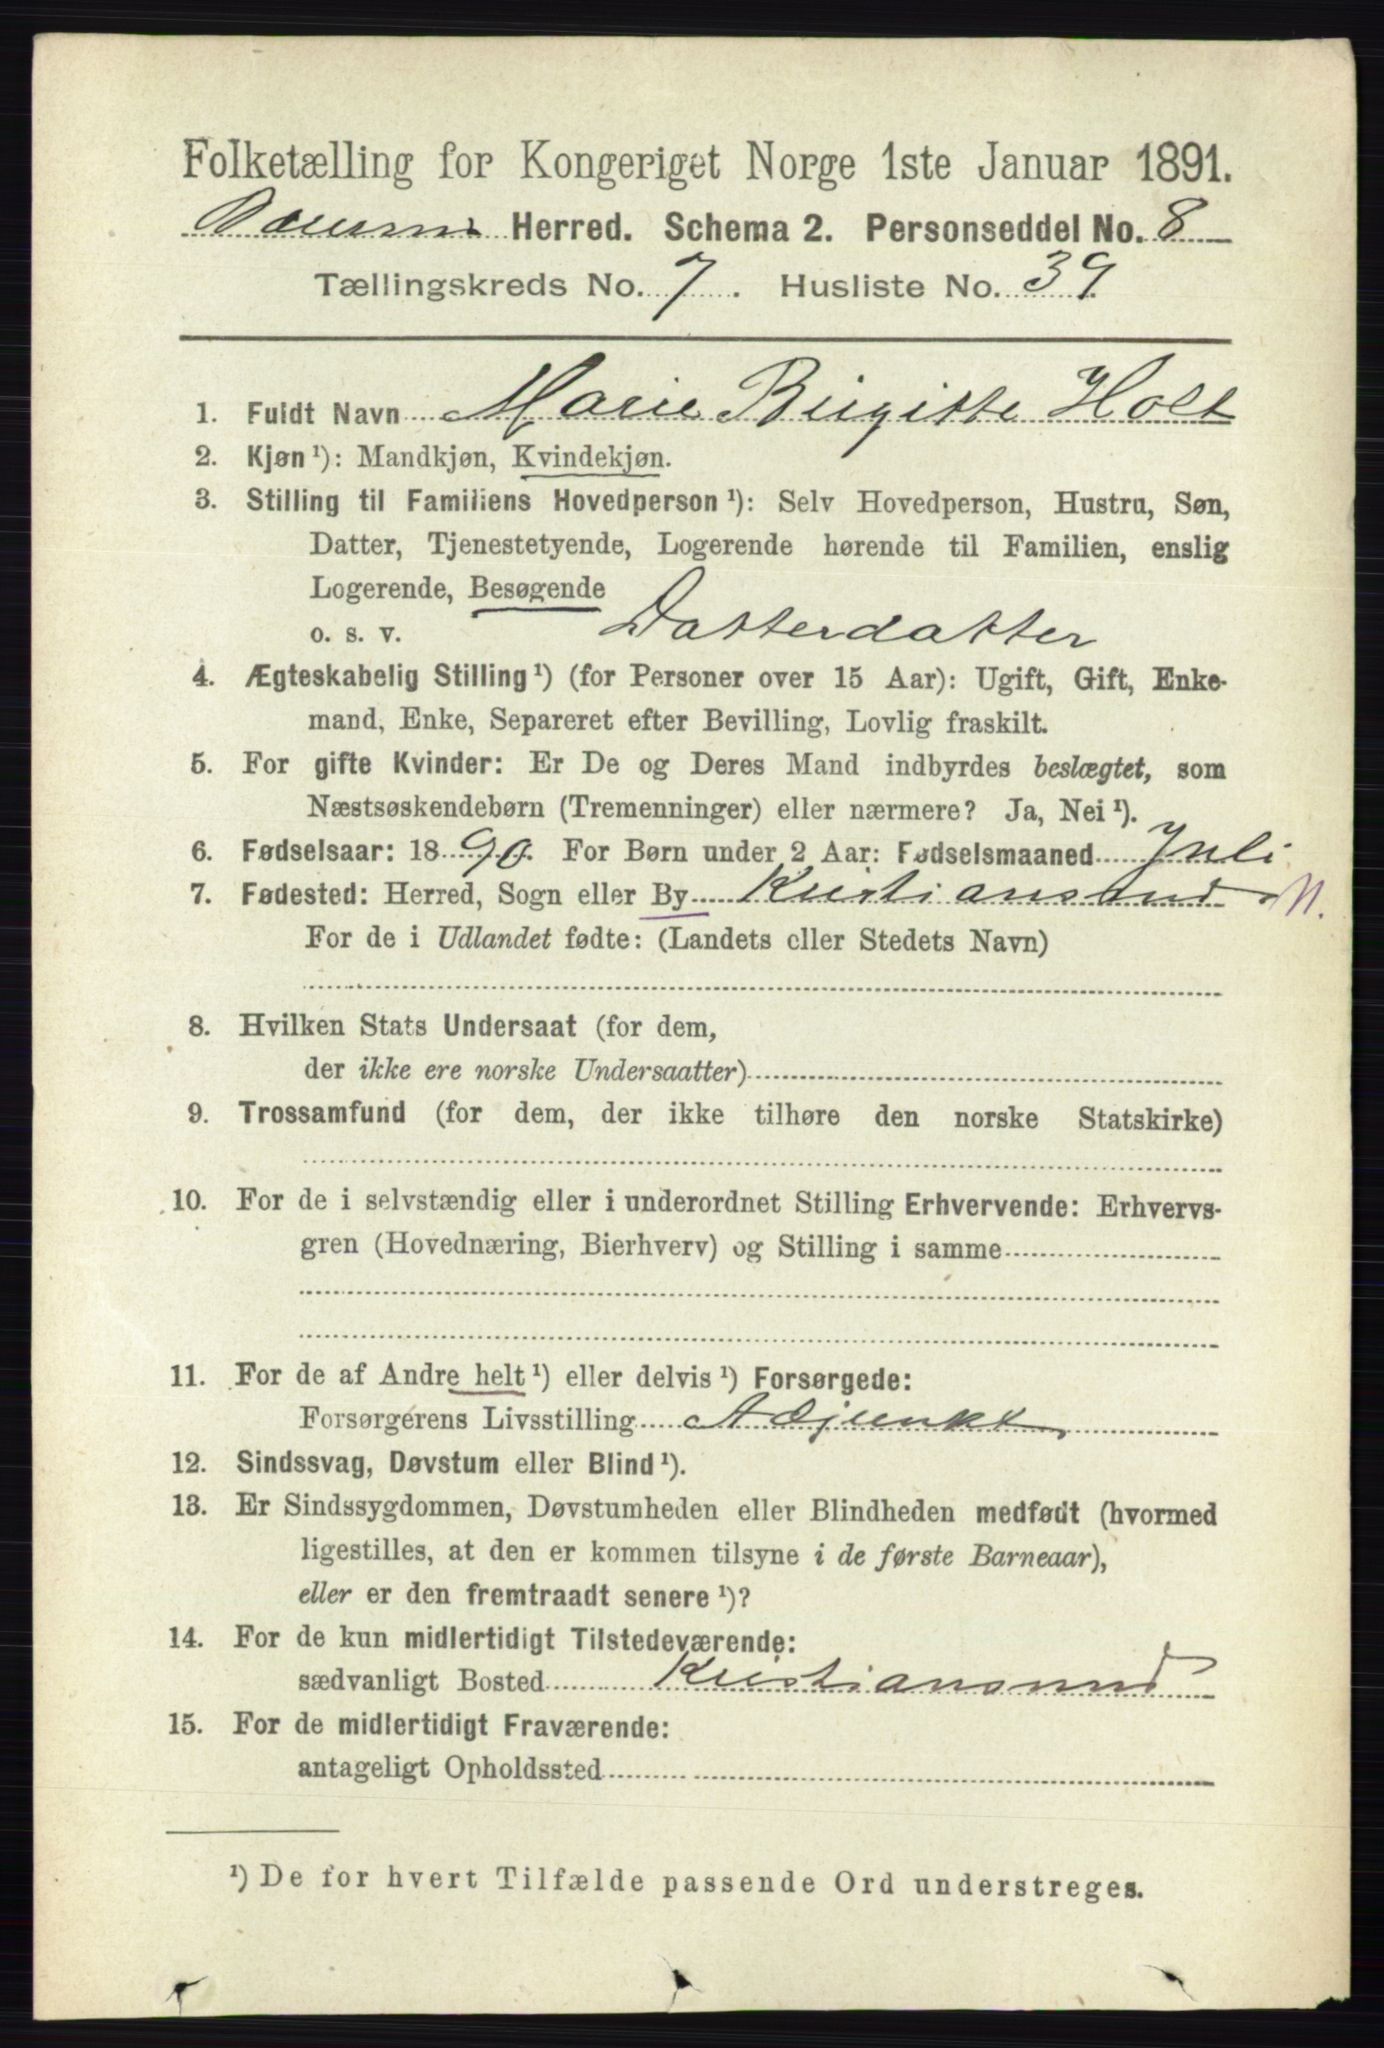 Folketælling for Kongeriget Norge 1ste Januar 1891.
Bærum Herred. Schema 2. Personseddel No. 8
Tællingskreds No. 7. Husliste No. 39
1. Fuldt Navn Marie Birgitte Holt
2. Kjøn ¹): Mandkjøn, Kvindekjøn.
3. Stilling til Familiens Hovedperson ¹): Selv Hovedperson, Hustru, Søn,
Datter, Tjenestetyende, Logerende hørende til Familien, enslig
Logerende, Besøgende
o. s. v. Datterdatter
4. Ægteskabelig Stilling ¹) (for Personer over 15 Aar): Ugift, Gift, Enke-
mand, Enke, Separeret efter Bevilling, Lovlig fraskilt.
5. For gifte Kvinder: Er De og Deres Mand indbyrdes beslægtet, som
Næstsøskendebørn (Tremenninger) eller nærmere? Ja, Nei ¹).
6. Fødselsaar: 1890. For Børn under 2 Aar: Fødselsmaaned Juli
7. Fødested: Herred, Sogn eller By Kristiansund N.
For de i Udlandet fødte: (Landets eller Stedets Navn)
8. Hvilken Stats Undersaat (for dem,
der ikke ere norske Undersaatter)
9. Trossamfund (for dem, der ikke tilhøre den norske Statskirke)
10. For de i selvstændig eller i underordnet Stilling Erhvervende: Erhvervs-
gren (Hovednæring, Bierhverv) og Stilling i samme
11. For de af Andre helt ¹) eller delvis ¹) Forsørgede:
Forsørgerens Livsstilling Adjunkt
12. Sindssvag, Døvstum eller Blind ¹).
13. Er Sindssygdommen, Døvstumheden eller Blindheden medfødt (hvormed
ligestilles, at den er kommen tilsyne i de første Barneaar),
eller er den fremtraadt senere ¹)?
14. For de kun midlertidigt Tilstedeværende:
sædvanligt Bosted Kristiansund
15. For de midlertidigt Fraværende:
antageligt Opholdssted
¹) De for hvert Tilfælde passende Ord understreges.